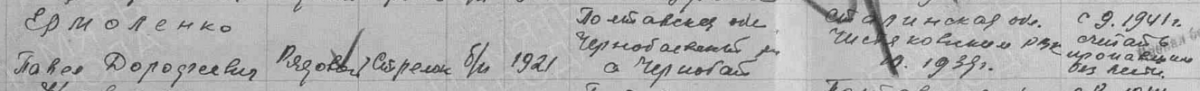 Ермоленко
Павел Дорофеевич
Рядовой Стрелок б/п 1921
Полтавская обл
Чернобаевский р
с Чернобай
Сталинская обл.
Чистяковским РВК
1939г.
с 9.1941г.
считать
пропавшим
без вести.